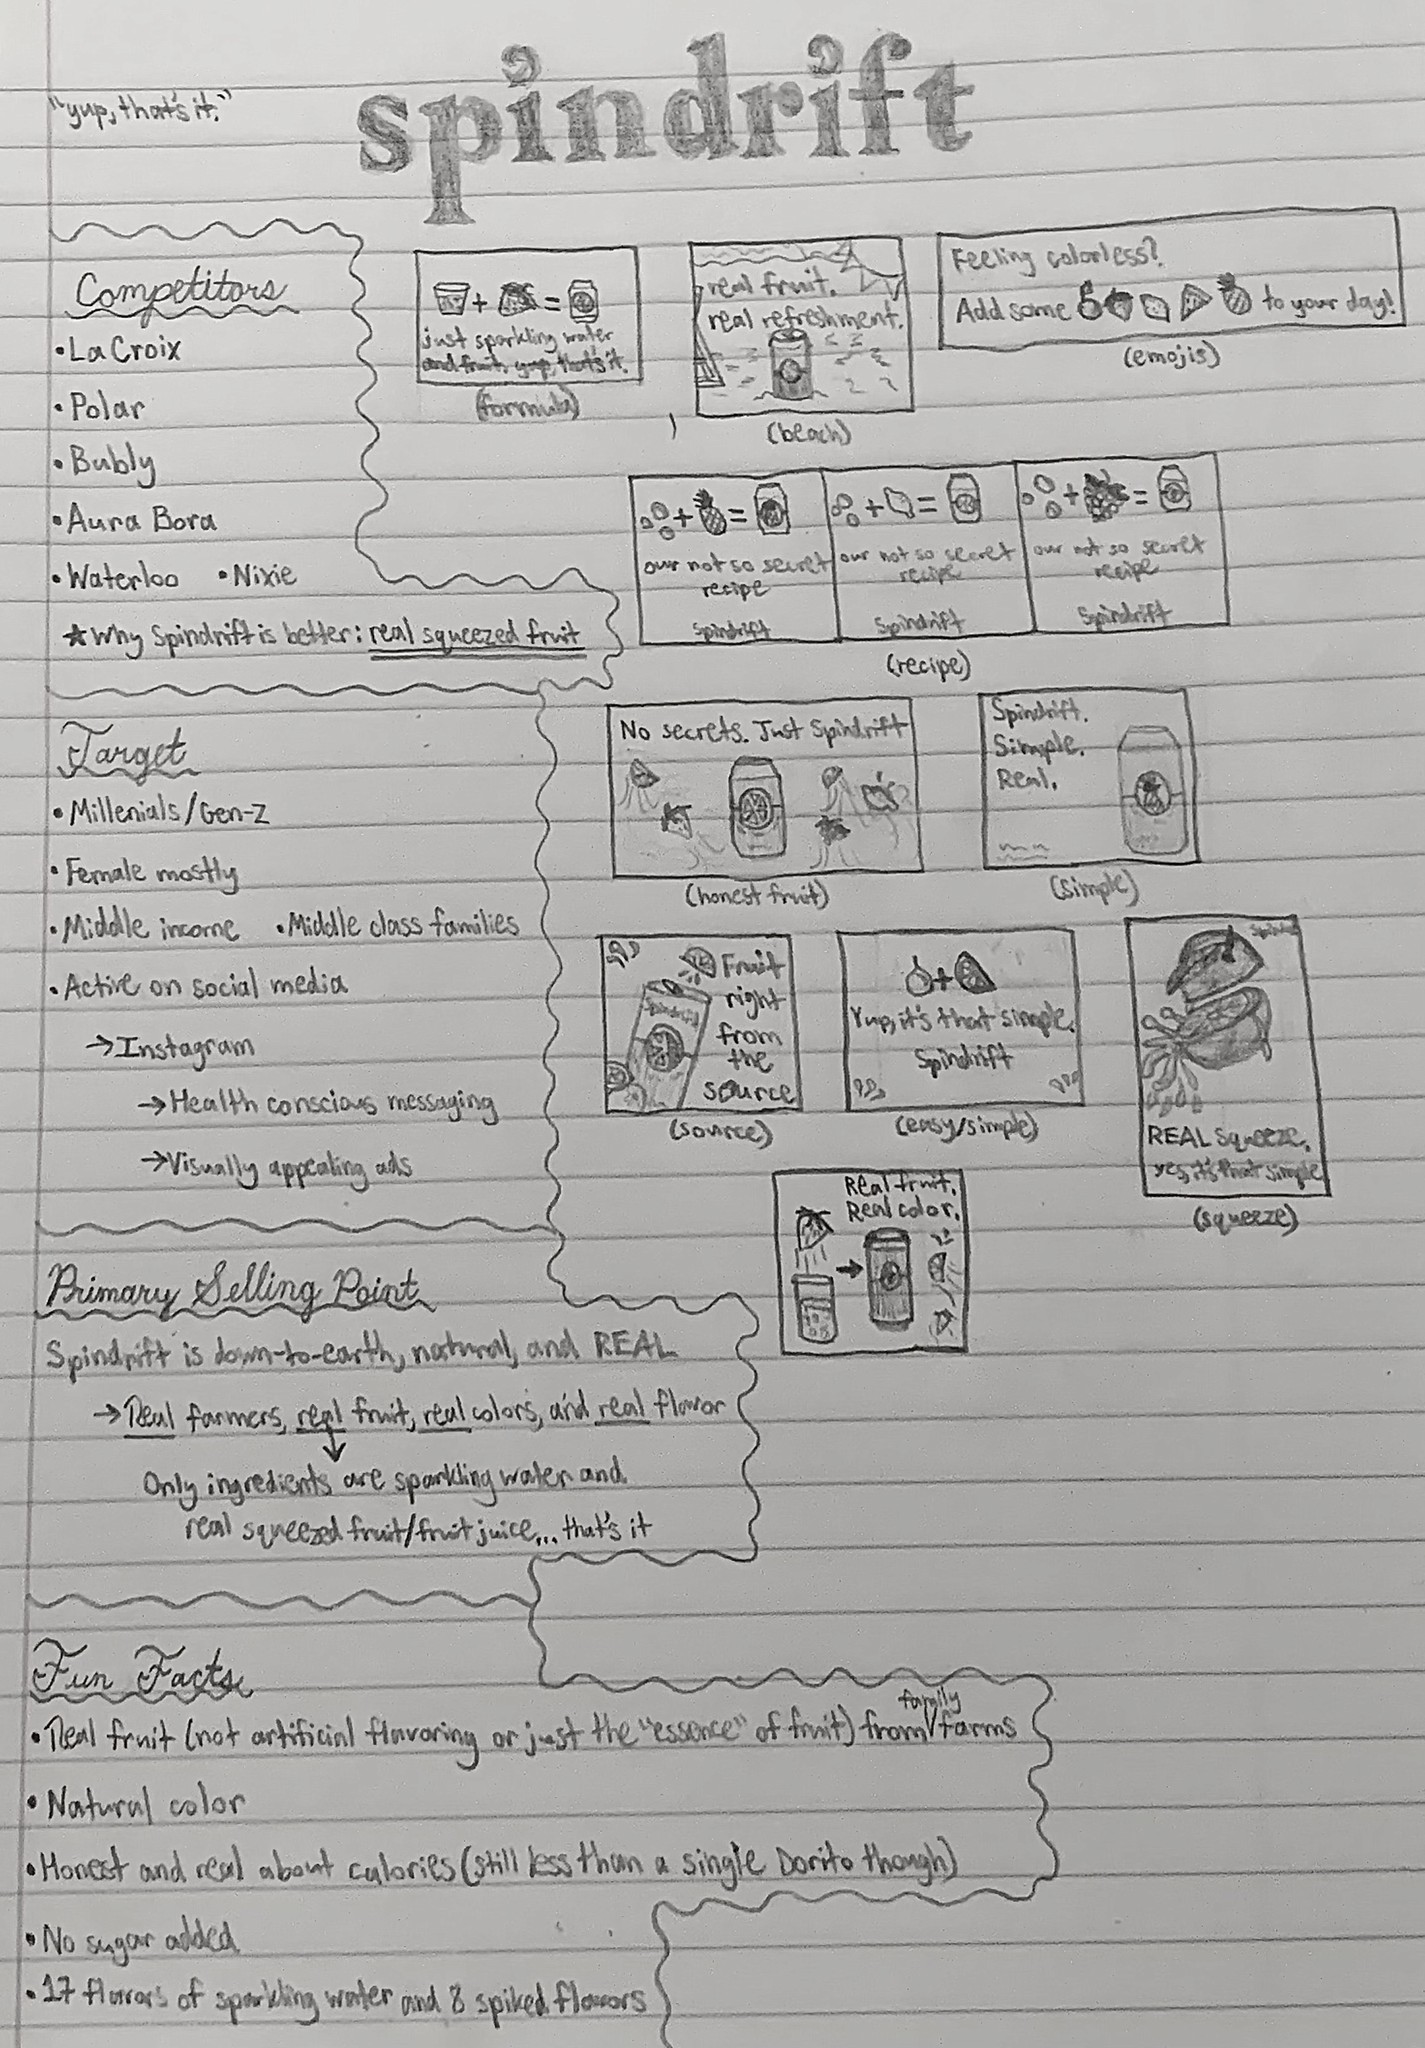 "yup, that's it."
spindrift
Competitors
• La Croix
• Polar
• Bubly
• Aura Bora
• Waterloo • Nixie
★ Why Spindrift is better: real squeezed fruit
just sparkling water
and fruit, yup, that's it.
(formula)
real fruit.
real refreshment.
(beach)
Feeling colorless?
Add some to your day!
(emojis)
our not so secret
recipe
Spindrift
our not so secret
recipe
Spindrift
our not so secret
recipe
Spindrift
(recipe)
Target
• Millenials/Gen-Z
• Female mostly
• Middle income • Middle class families
• Active on social media
→ Instagram
→ Health conscious messaging
→ Visually appealing ads
No secrets. Just Spindrift
(honest fruit)
Spindrift.
Simple.
Real.
(simple)
Spindrift
Fruit
right
from
the
source
(source)
Yup, it's that simple.
Spindrift
(easy/simple)
REAL squeeze.
yes, it's that simple
(squeeze)
Real fruit.
Real color.
Primary Selling Point
Spindrift is down-to-earth, natural, and REAL
→ Real farmers, real fruit, real colors, and real flavor
Only ingredients are sparkling water and
real squeezed fruit/fruit juice... that's it
Fun Facts
• Real fruit (not artificial flavoring or just the "essence" of fruit) from family farms
• Natural color
• Honest and real about calories (still less than a single Dorito though)
• No sugar added
• 17 flavors of sparkling water and 8 spiked flavors